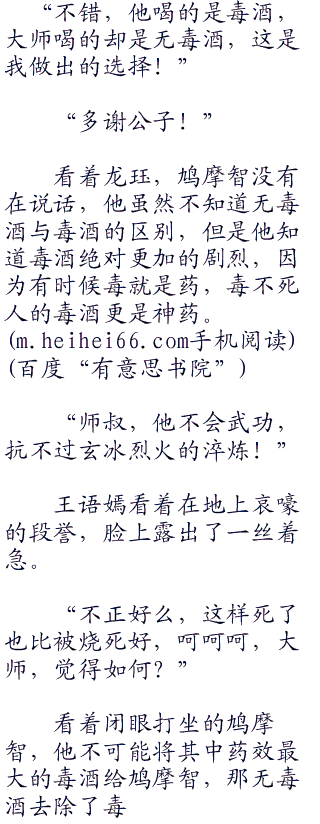 “不错，他喝的是毒酒，
大师喝的却是无毒酒，这是
我做出的选择！”
“多谢公子！”
看着龙珏，鸠摩智没有
在说话，他虽然不知道无毒
酒与毒酒的区别，但是他知
道毒酒绝对更加的剧烈，因
为有时候毒就是药，毒不死
人的毒酒更是神药。
(m.heihei66.com手机阅读)
(百度“有意思书院”)
“师叔，他不会武功，
抗不过玄冰烈火的淬炼！”
王语嫣看着在地上哀嚎
的段誉，脸上露出了一丝着
急。
“不正好么，这样死了
也比被烧死好，呵呵呵，大
师，觉得如何？”
看着闭眼打坐的鸠摩
智，他不可能将其中药效最
大的毒酒给鸠摩智，那无毒
酒去除了毒